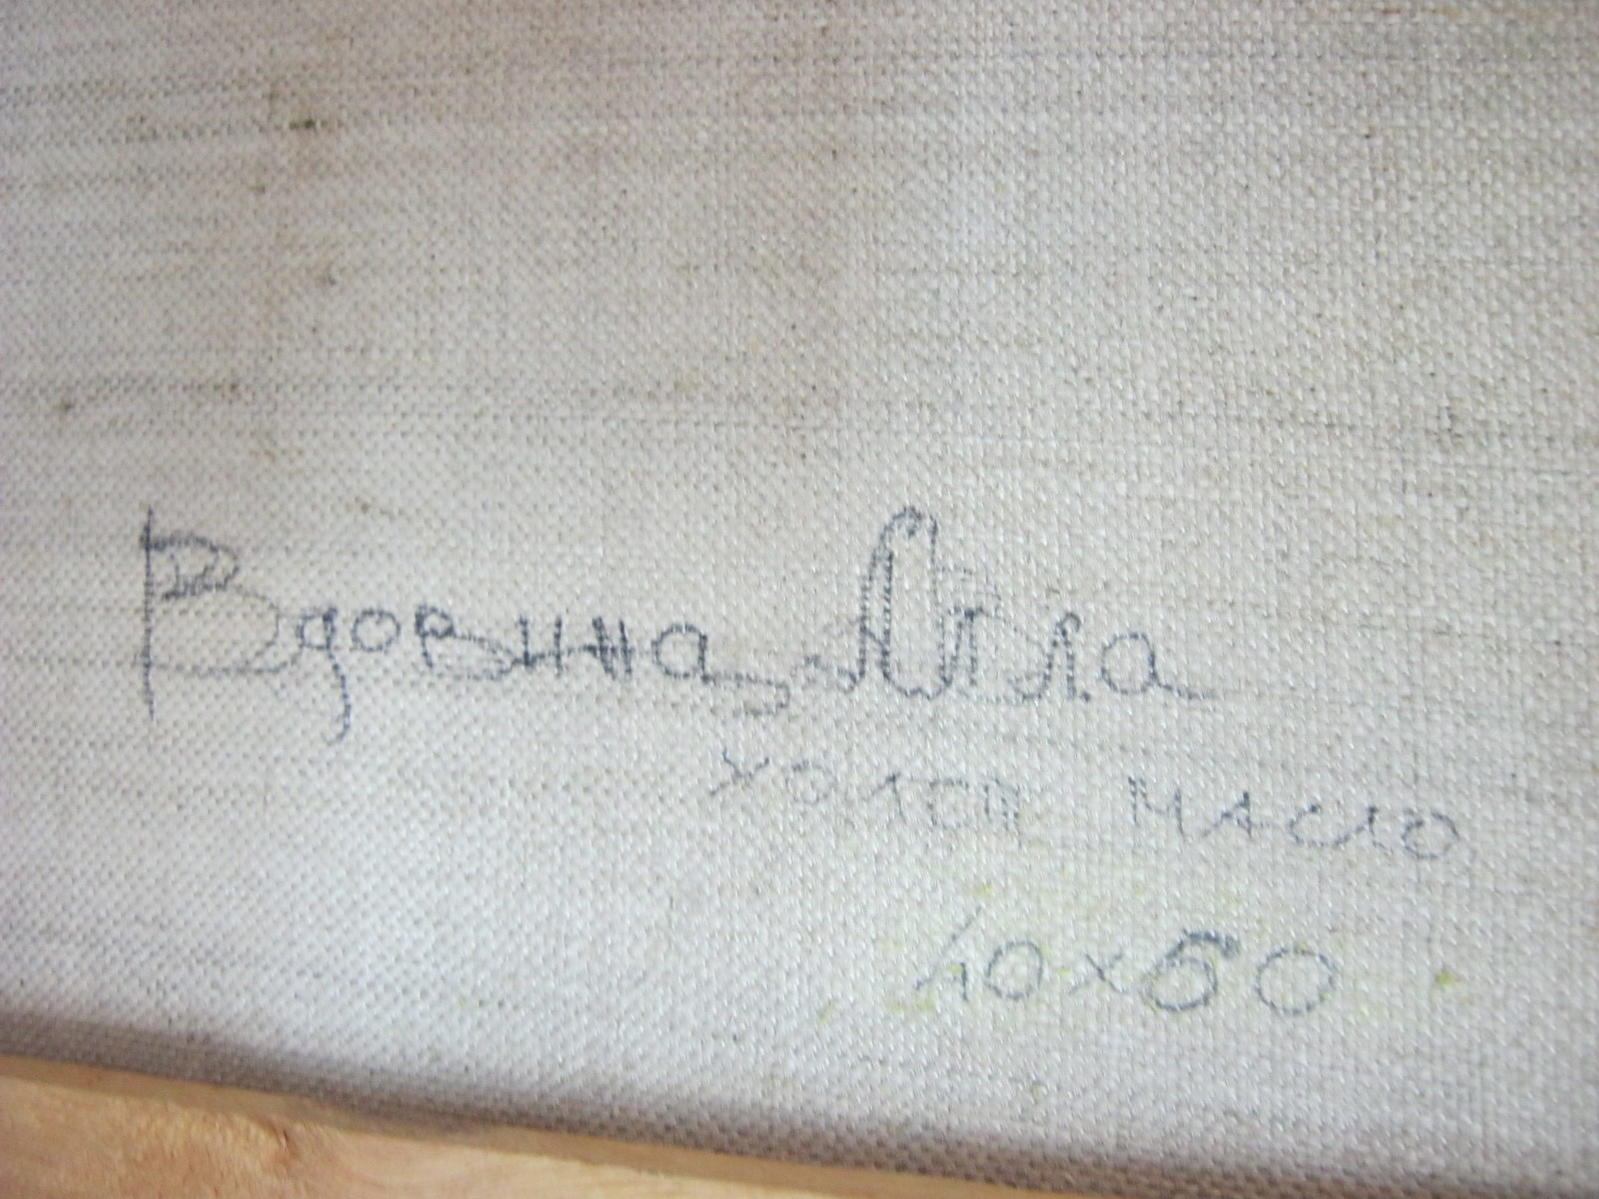 Вдовина Алла
холст масло
40x50